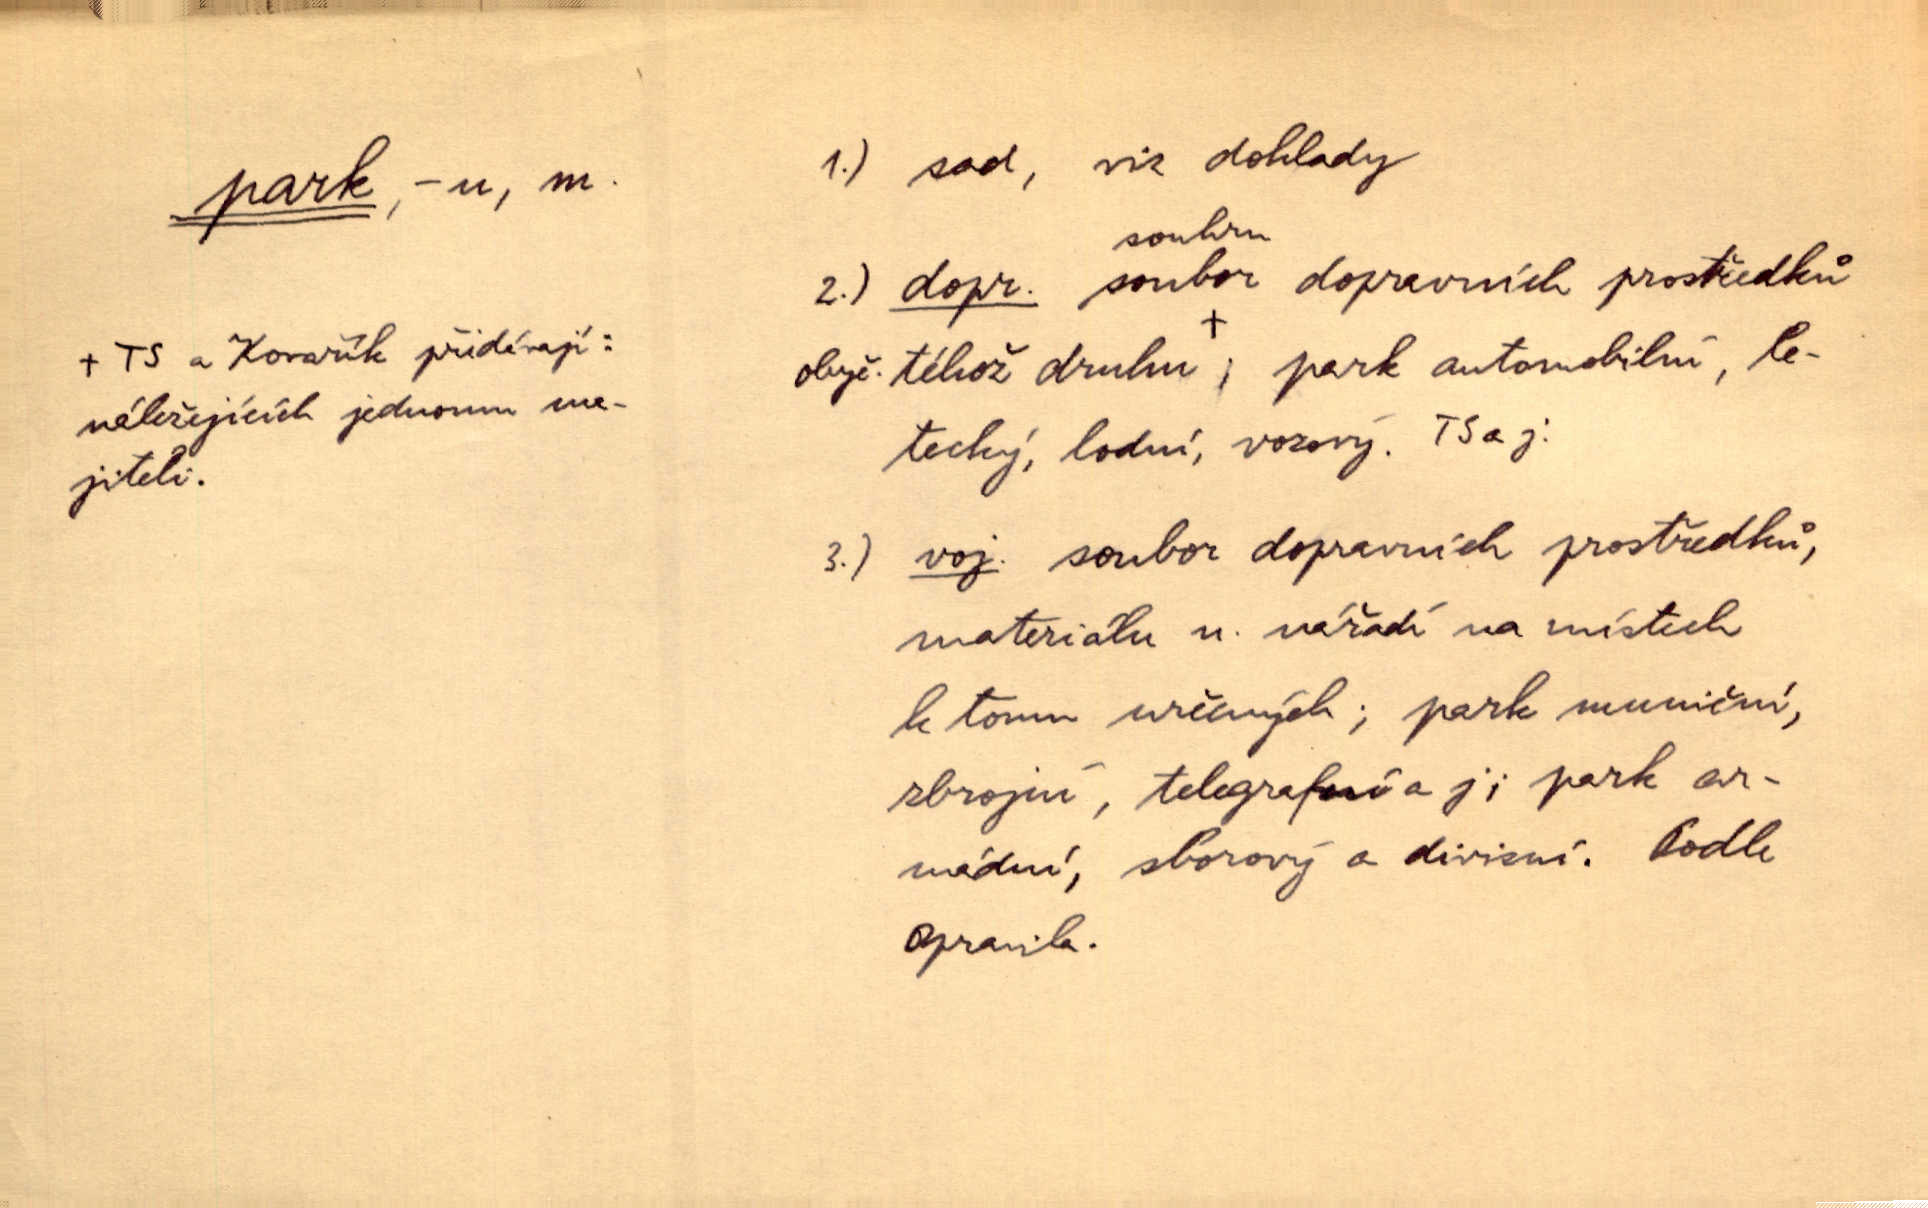 park, -u, m.
+ TS a Kovařík přidávají:
náležejících jednomu ma-
jiteli.
1.) sad, viz doklady
souhrn
2.) dopr. soubor dopravních prostředků
obyč. téhož druhu +; park automobilní, le-
tecký, lodní, vozový. TS a j.
3.) voj. soubor dopravních prostředků,
materiálu n. nářadí na místech
k tomu určených; park muniční,
zbrojní, telegrafní a j; park ar-
mádní, sborový a divisní. Podle
Opravila.